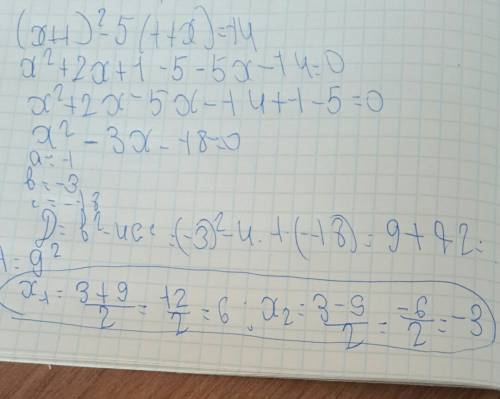 (x+1)²-5(1+x)=14
x²+2x+1-5-5x-14=0
x²+2x-5x-14+1-5=0
x²-3x-18=0
a=1
b=-3
c=-18
D=b²-4ac=(-3)²-4·1·(-18)=9+72=
=9²
x₁=\frac{3+9}{2}=\frac{12}{2}=6; x₂=\frac{3-9}{2}=\frac{-6}{2}=-3